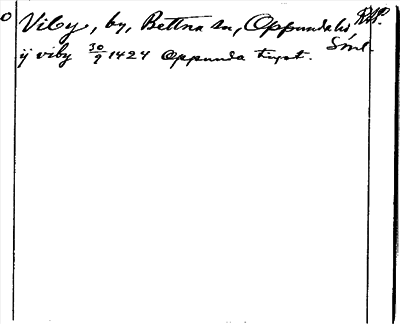 O Viby, by, Bettna sn, Oppunda hd RAP.
Söml.
ij viby 30/9 1424 Oppunda tingst.